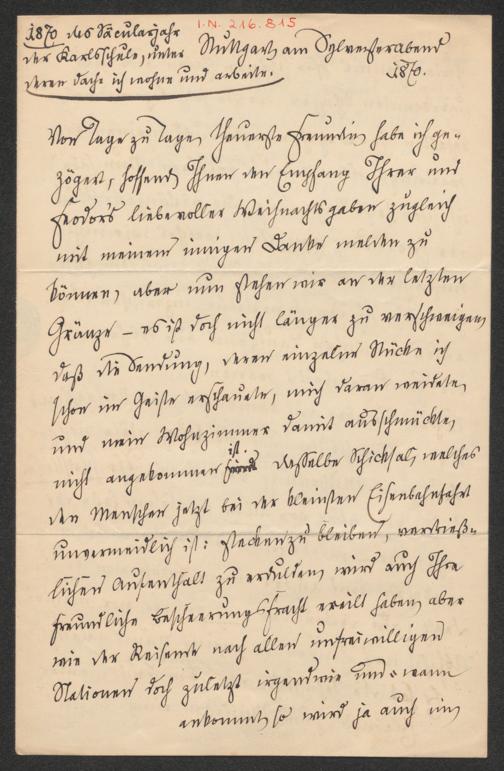 I.N. 216.815
1870 des Säcularjahr
der Karlsschule, unter
deren Dache ich wohne und arbeite.
Stuttgart am Sylvesterabend
1870.
Von Tage zu Tage, theuerste Freundin habe ich ge-
zögert, hoffend Ihnen den Empfang Ihrer und
Feodors liebevoller Weihnachtsgaben zugleich
mit meinem innigen Danke melden zu
können, aber nun stehen wir an der letzten
Gränze – es ist doch nicht länger zu verschweigen,
daß die Sendung, deren einzelne Stücke ich
schon im Geiste erschaute, mich daran weidete,
und mein Wohnzimmer damit ausschmückte,
nicht angekommen ist. dasselbe Schicksal, welches
den Menschen jetzt bei der kleinsten Eisenbahnfahrt
unvermeidlich ist: steckenzubleiben, verdrieß-
lichen Aufenthalt zu erdulden, wird auch Ihre
freundliche Bescheerungsfracht ereilt haben, aber
wie der Reisende nach allen unfreiwilligen
Stationen doch zuletzt irgendwie und -wann
ankommt, so wird ja auch im